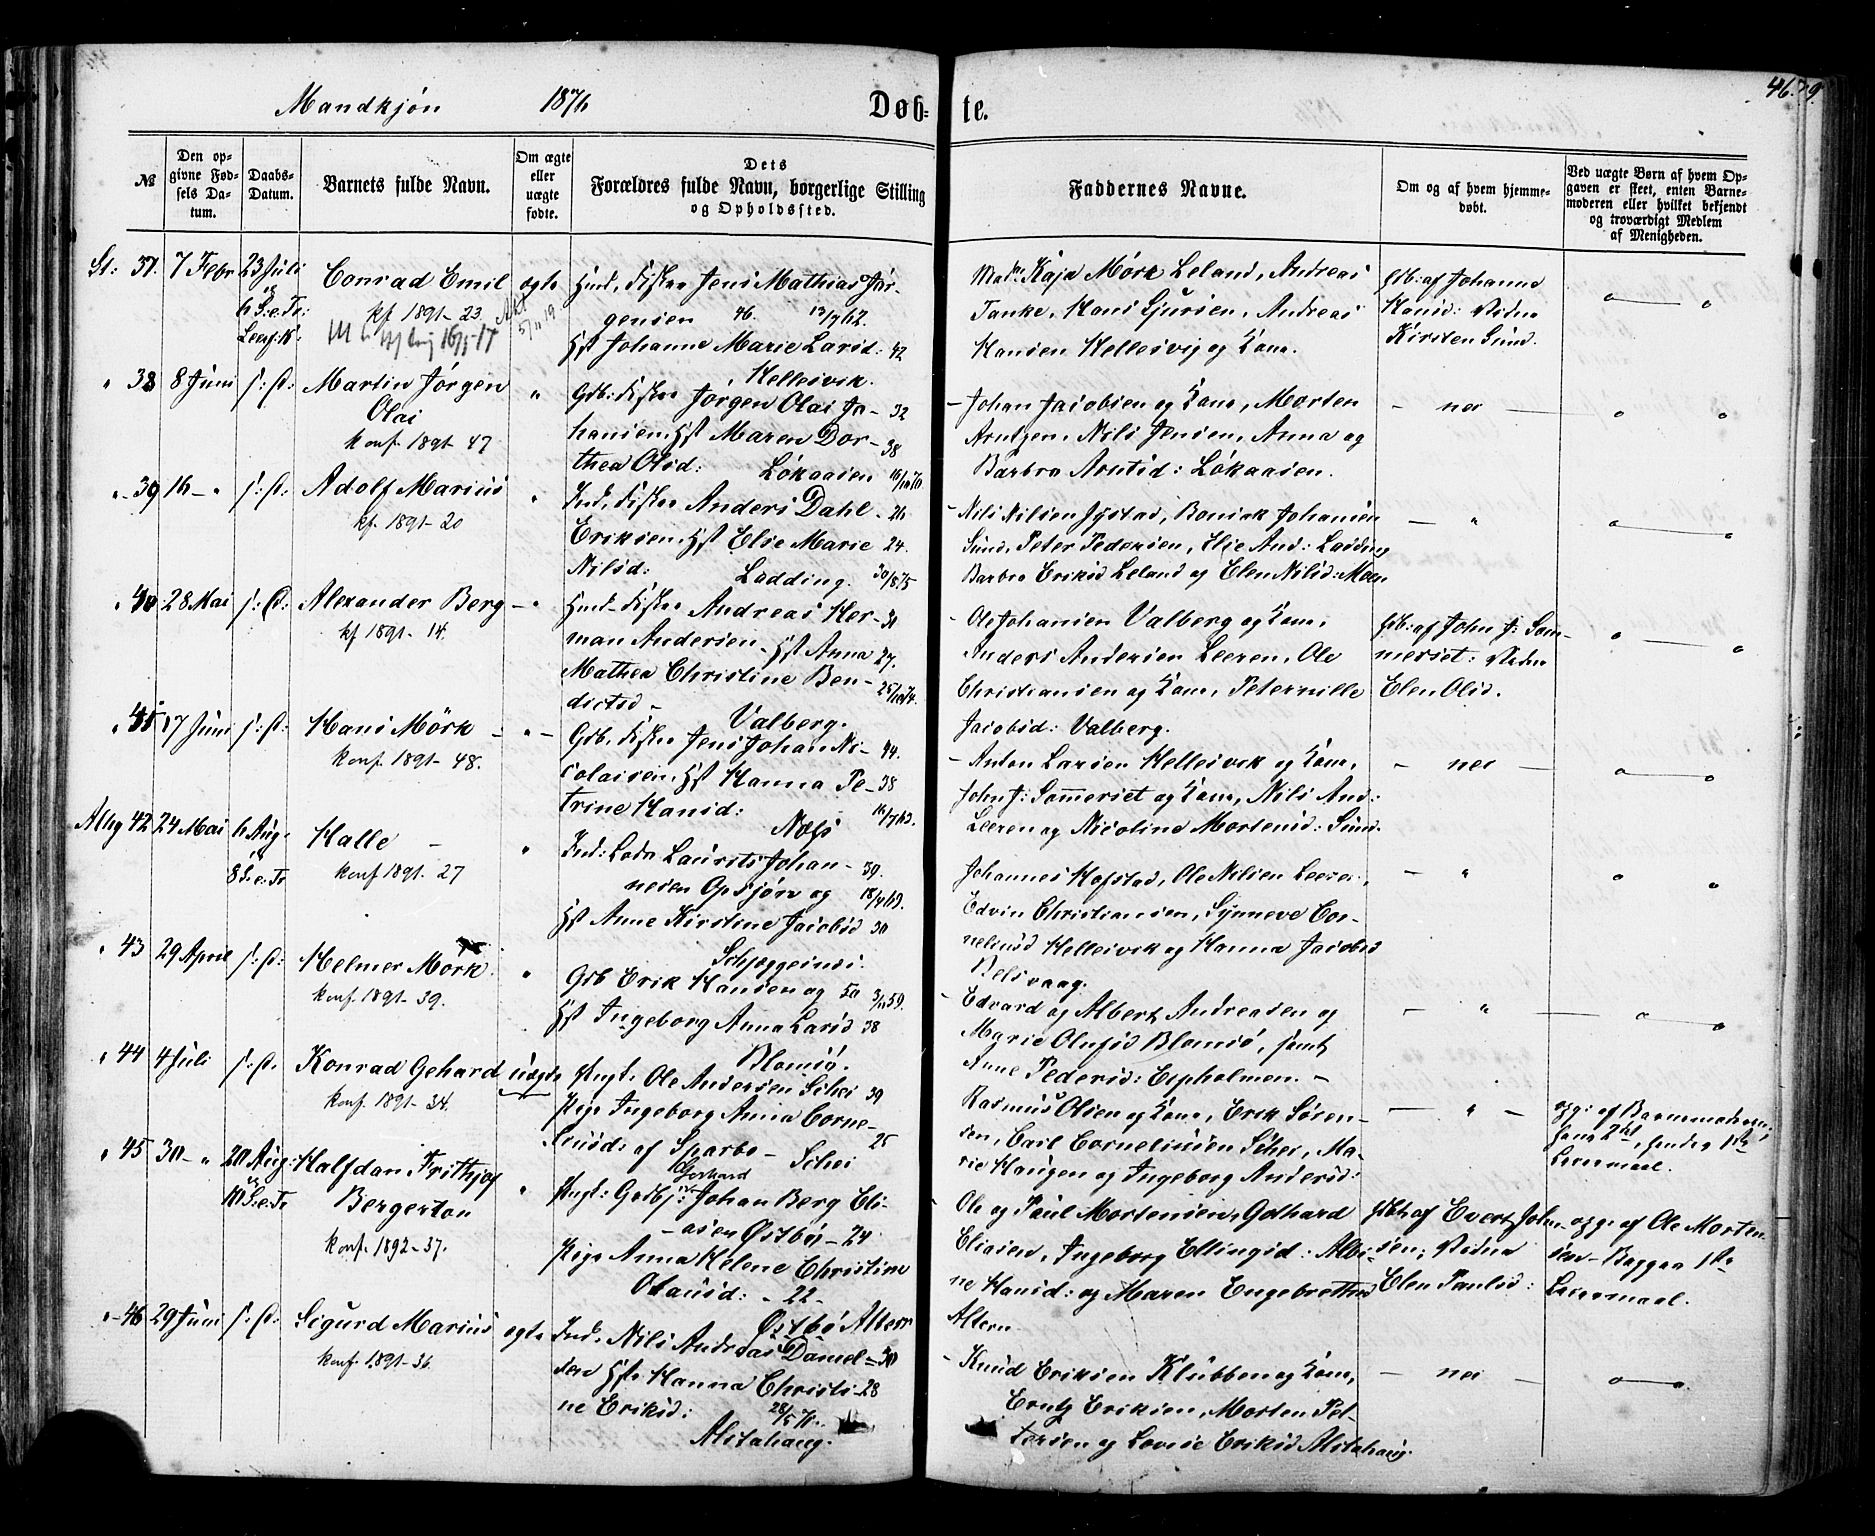 Mandkjøn 1876 Døb= te. 46. 79
№
Den op-
givne Fød-
sels Da-
tum.
Daabs-
Datum.
Barnets fulde Navn.
Om ægte
eller
uægte
fødte.
Dets
Forældres fulde Navn, borgerlige Stilling
og Opholdssted.
Faddernes Navne.
Om og af hvem hjemme-
døbt.
Ved uægte Børn af hvem Op-
gaven er skeet, enten Barne-
moderen eller hvilket bekjendt
og troværdigt Medlem
af Menigheden.
St: 37. 7 Febr 23 Juli
6 S. e. Tr:
Conrad Emil ægte
kf 1891-23.
Jens Mathias Jör-
gensen 46.
Hst Johanne Marie Larsd: 42
Hellesvik.
Kaja Mörk Leland, Andreas
Tanke, Hans Sjursen, Andreas
Hansen Hellesvig og Kone.
hdb: af Johanna
Hansd: Vidne
Kirsten Sund.
" 38 8 Juni s: D: Martin Jörgen
Olai
konf. 1891-47
Gdb: Fisker Jörgen Olai Jo- 32
hansen. Hst Maren Dor- 38
thea Olsd: Lökaasen
Johan Jacobsen og Kone, Morten
Arntzen, Nils Jensen, Anna og
Barbro Arntsd: Lökaasen.
- nei
" 39 16 - " s: D: Adolf Marius "
kf. 1891-20
Ind. Fisker Anders Dahl - 26
Eriksen. Hst Elie Marie 24.
Nilsd: Ladding. 30/8 75
- Nils Nilsen Jystad, Johansen
Sund, Peter Pedersen, Elie And: Ladding
Barbro Eriksd Leland og Elen Nilsd: Moen
" 40 28 Mai s: D: Alexander Berg - "
kf 1891-14.
Fisker Andreas Her- 31
man Andersen. Hst Anna 27.
Mathea Christine Ben-
dictsd - Valberg.
- Ole Johansen Valberg og Kone,
Anders Andersen Leeren, Ole
Christiansen og Kone, Peternille
Jacobsd: Valberg.
hdb: af John J: Som-
merset: Vidne
Elen Olsd.
" 41 17 Juni s: D: Hans Mörk - " -
konf. 1891-48.
Gdb. Fisker Jens Johan Ni- 44.
colaisen. Hst Hanna Pe- 38
trine Hansd: Næss
- Anton Larsen Hellesvik og Kone,
John J: Sommerset og Kone, Nils And:
Leeren og Nicoline Mortensd: Sund.
- nei -
42 24 Mai 6 Aug:
8 S. e. Tr
Halle - "
konf 1891-27
Ind: Lods Laurits Johan- 39.
nesen Opsjön og
Hst Anne Kirstine Jacobsd 30
Johannes Hofstad, Ole Nilsen Leeren,
Edvin Christiansen, Synneve Cor-
neliusd Hellesvik og Hanna Jacobsd
" 43 29 April s: D: Helmer Mörk. "
konf. 1891-39.
Gdb Erik Hansen og 50
Hst Ingeborg Anna Larsd 38
Blomsö.
- Edvard og Albert Andreasen og
Marie Olufsd Blomsö, samt
Anne Pedersd: Espholmen. -
" 44 4 Juli s: D. Konrad Gehard uægte
konf. 1891-34.
Ungk: Ole Andersen Schei 39
Pige Ingeborg Anna Corne-
liusd: af Sparbo - Schei 25
Rasmus Olsen og Kone, Erik Sören-
sen, Carl Corneliusen Schei, Ma-
rie Haugen og Ingeborg Andersd:
opg: af Barnemoderen,
hans 2det, hendes 1ste
Leiermaal.
" 45 30 - " 20 Aug:
10 S. e. Tr
Halfdan Frithjof
Bergerton "
konf. 1892-37.
Gerhard
Ungk: Johan Berg Eli-
asen Østbö - 24
Pige Anna Helene Christine
Olausd: - 22 -
Østbö Alteren
Ole og Paul Mortensen, Gothard
Eliasen, Ingeborg Ellingsd: Albi-
ne Hansd: og Maren Engebrethsd
Altern
hdbt af Evert John-
sen; Vidne
Elen Paulsd:
opg: af Ole Morten-
sen - Baggaa 1ste
Leiermaal.
" 46 29 Juni s: D: Sigurd Marius ægte
konf. 1891-36.
Ind: Nils Andreas Daniel- 30
sen Hst: Hanna Christi- 28
ne Eriksd: 28/5 76.
Alstahaug.
- Knud Eriksen Klubben og Kone,
Erntz Eriksen, Morten Pet-
tersen og Lovise Eriksd Alstahaug.
- nei -